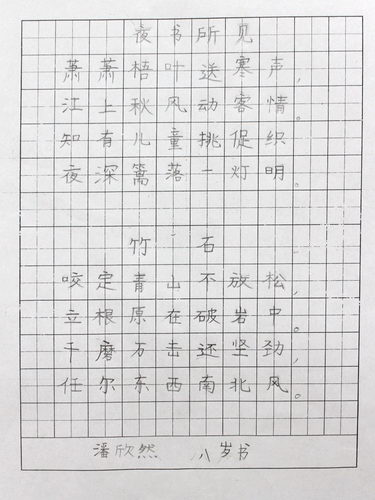 夜书所见
萧萧梧叶送寒声,
江上秋风动客情。
知有儿童挑促织
夜深篱落一灯明。
竹石
咬定青山不放松,
立根原在破岩中。
千磨万击还坚劲,
任尔东西南北风。
潘欣然 八岁书